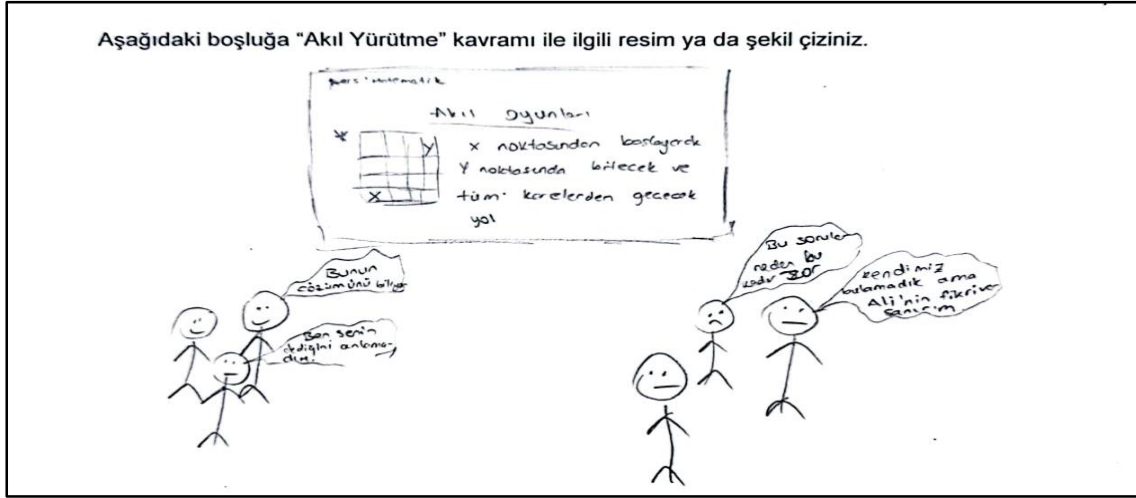 Aşağıdaki boşluğa “Akıl Yürütme” kavramı ile ilgili resim ya da şekil çiziniz.
Ders: Matematik
Akıl Oyunları
Y
X
x noktasından başlayarak
Y noktasında bitecek ve
tüm karelerden geçecek
yol
Bunun
çözümünü
Ben senin
dediğini anlama-
dım.
Bu sorular
neden bu
kadar zor
kendimiz
bulamadık ama
Ali'nin fikri var
sanırım